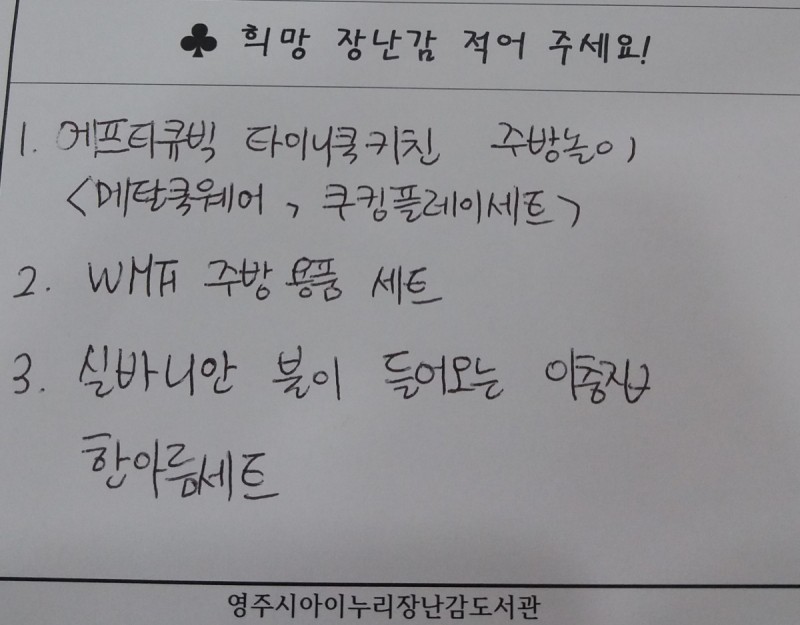 ♣ 희망 장난감 적어 주세요!
1. 에프티큐빅 타이니쿡키친 주방놀이
<메탈쿡웨어, 쿠킹플레이세트>
2. WMF 주방 용품 세트
3. 실바니안 불이 들어오는 이층집
한아름세트
영주시아이누리장난감도서관